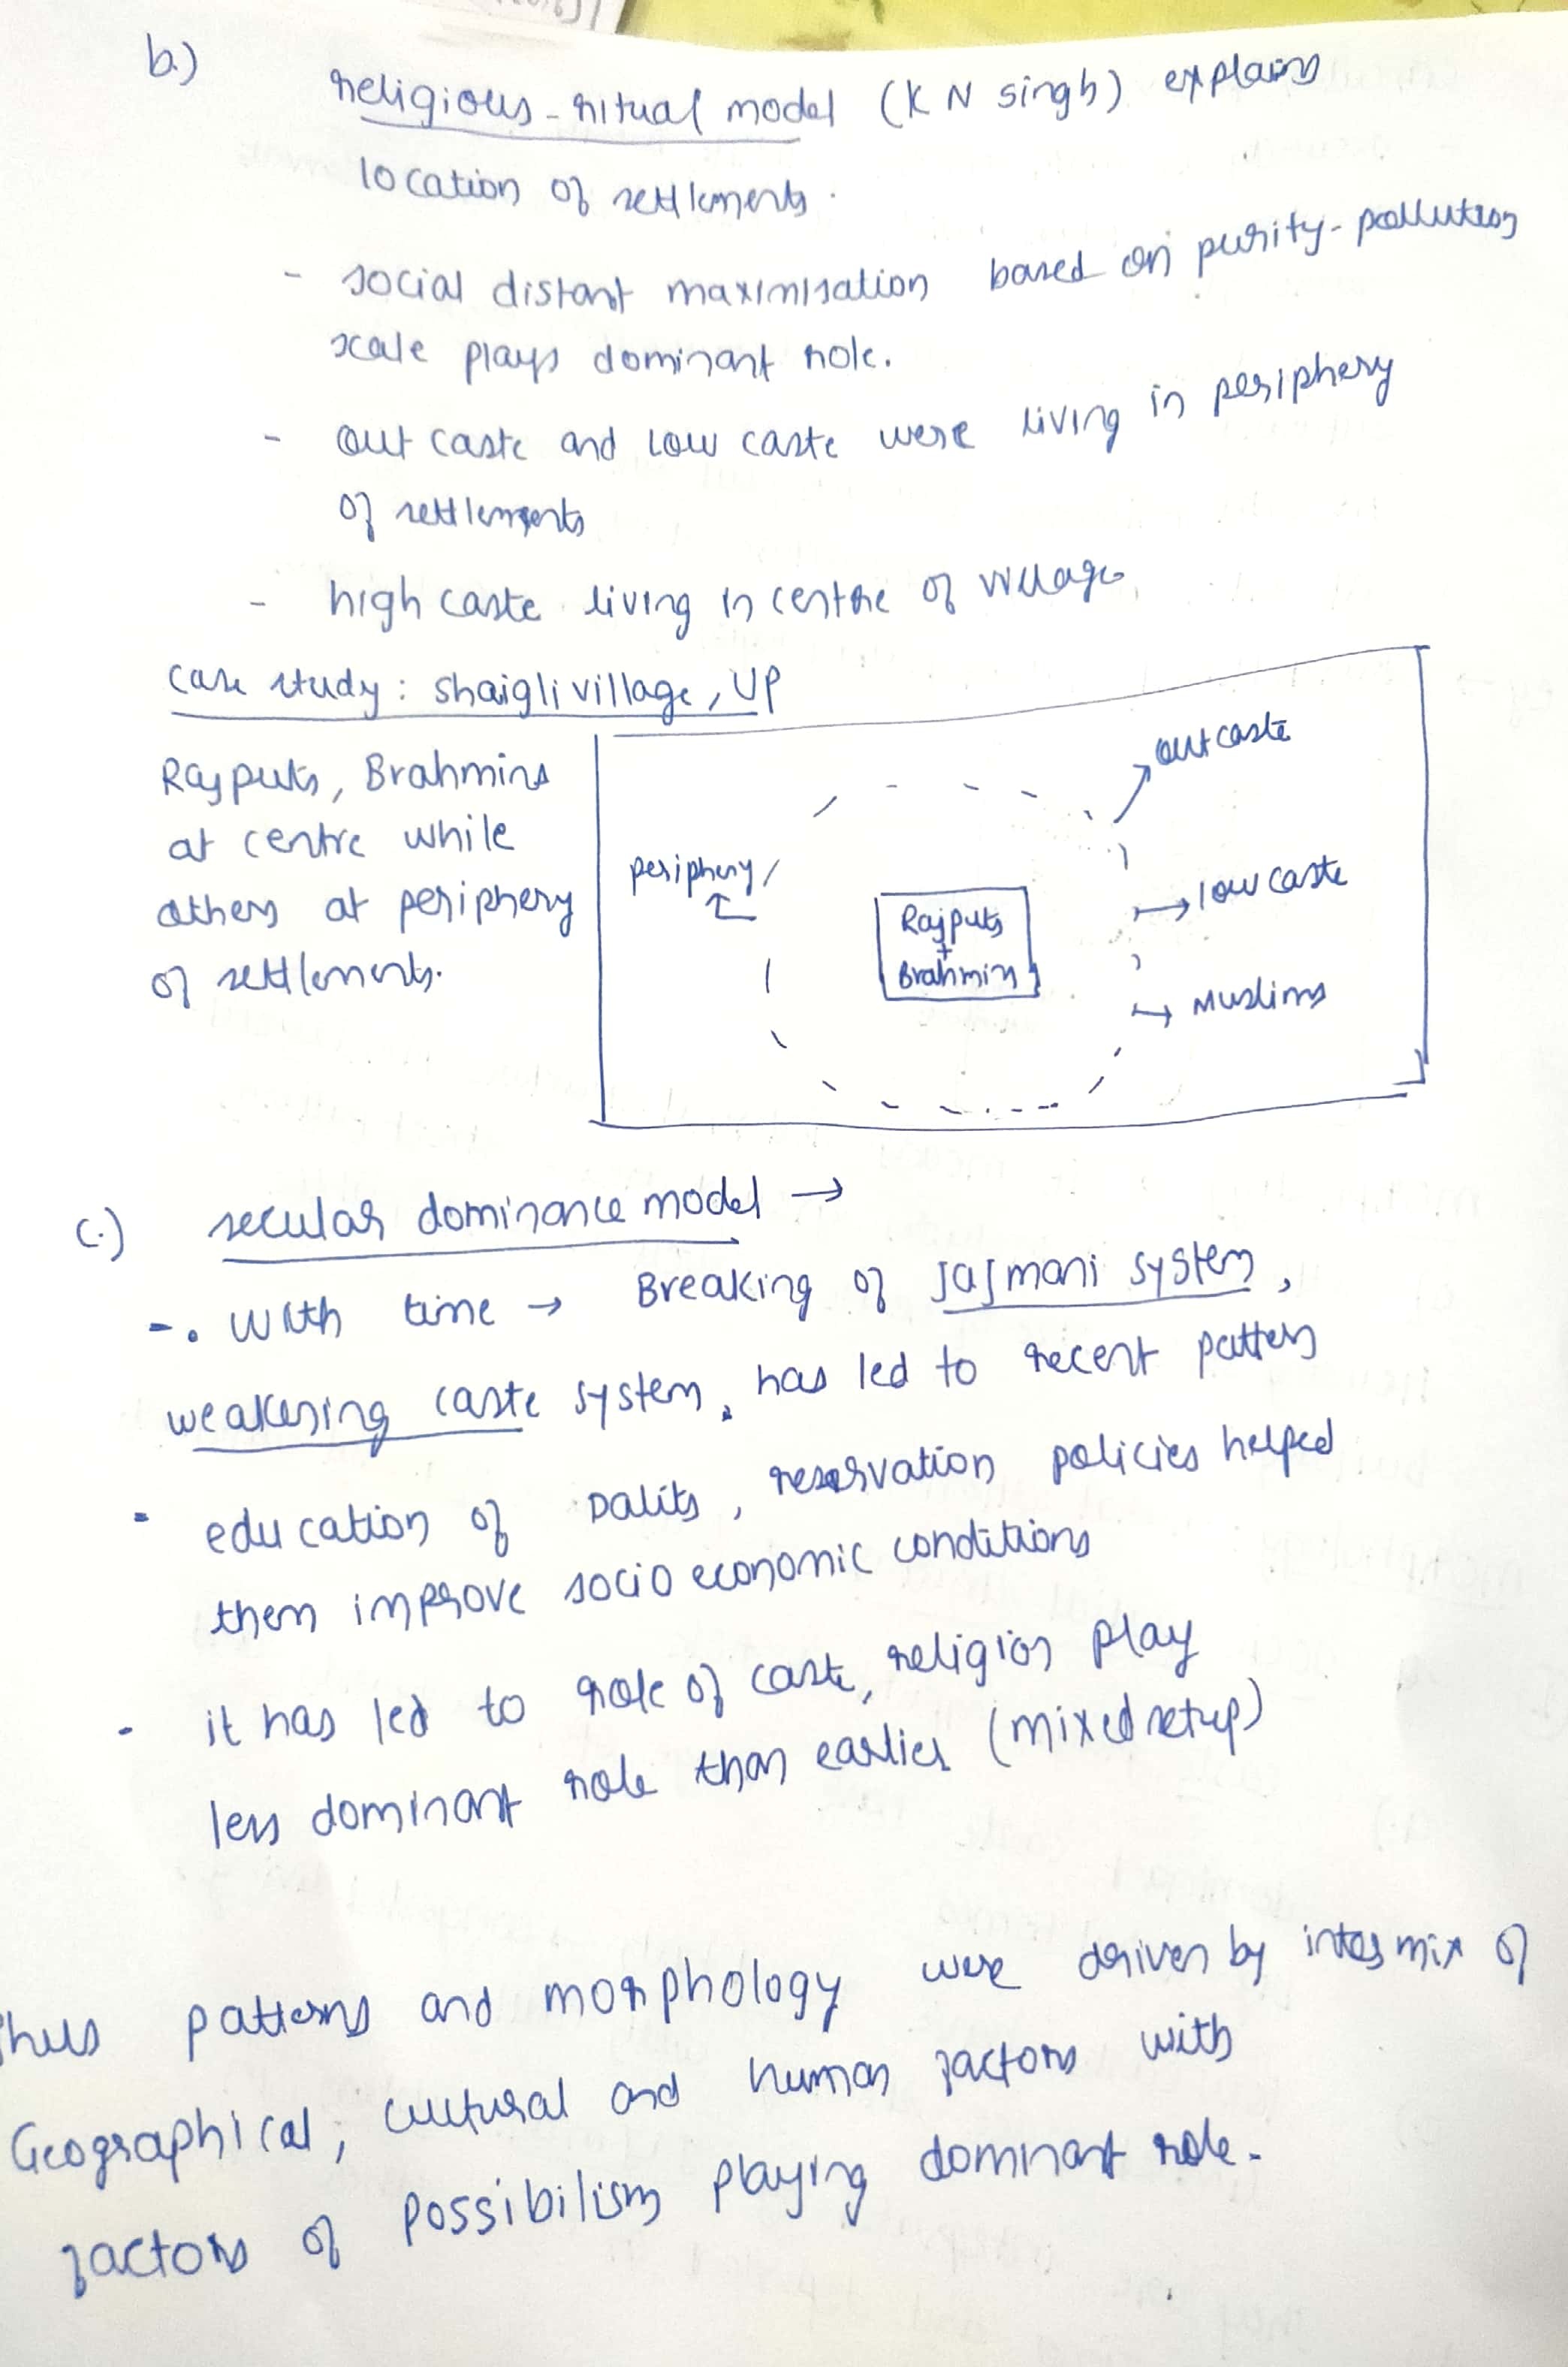 b.)
religious-ritual model (K N singh) explains
location of settlements.
- social distant maximisation based on purity-pollution
scale plays dominant role.
- out caste and low caste were living in periphery
of settlements
- high caste living in centre of village
case study: shaigli village, UP
Rajputs, Brahmins
at centre while
others at periphery
of settlements.
outcaste
periphery
low caste
Rajputs
+
Brahmins
Muslims
c.) secular dominance model →
-. with time → Breaking of Jajmani system,
weakening caste system, has led to recent pattern
- education of Dalits, reservation policies helped
them improve socio economic conditions
- it has led to role of caste, religion play
less dominant role than earlier (mixed setup)
patterns and morphology were driven by intermix of
Geographical, cultural and human factors with
factors of possibilism playing dominant role.